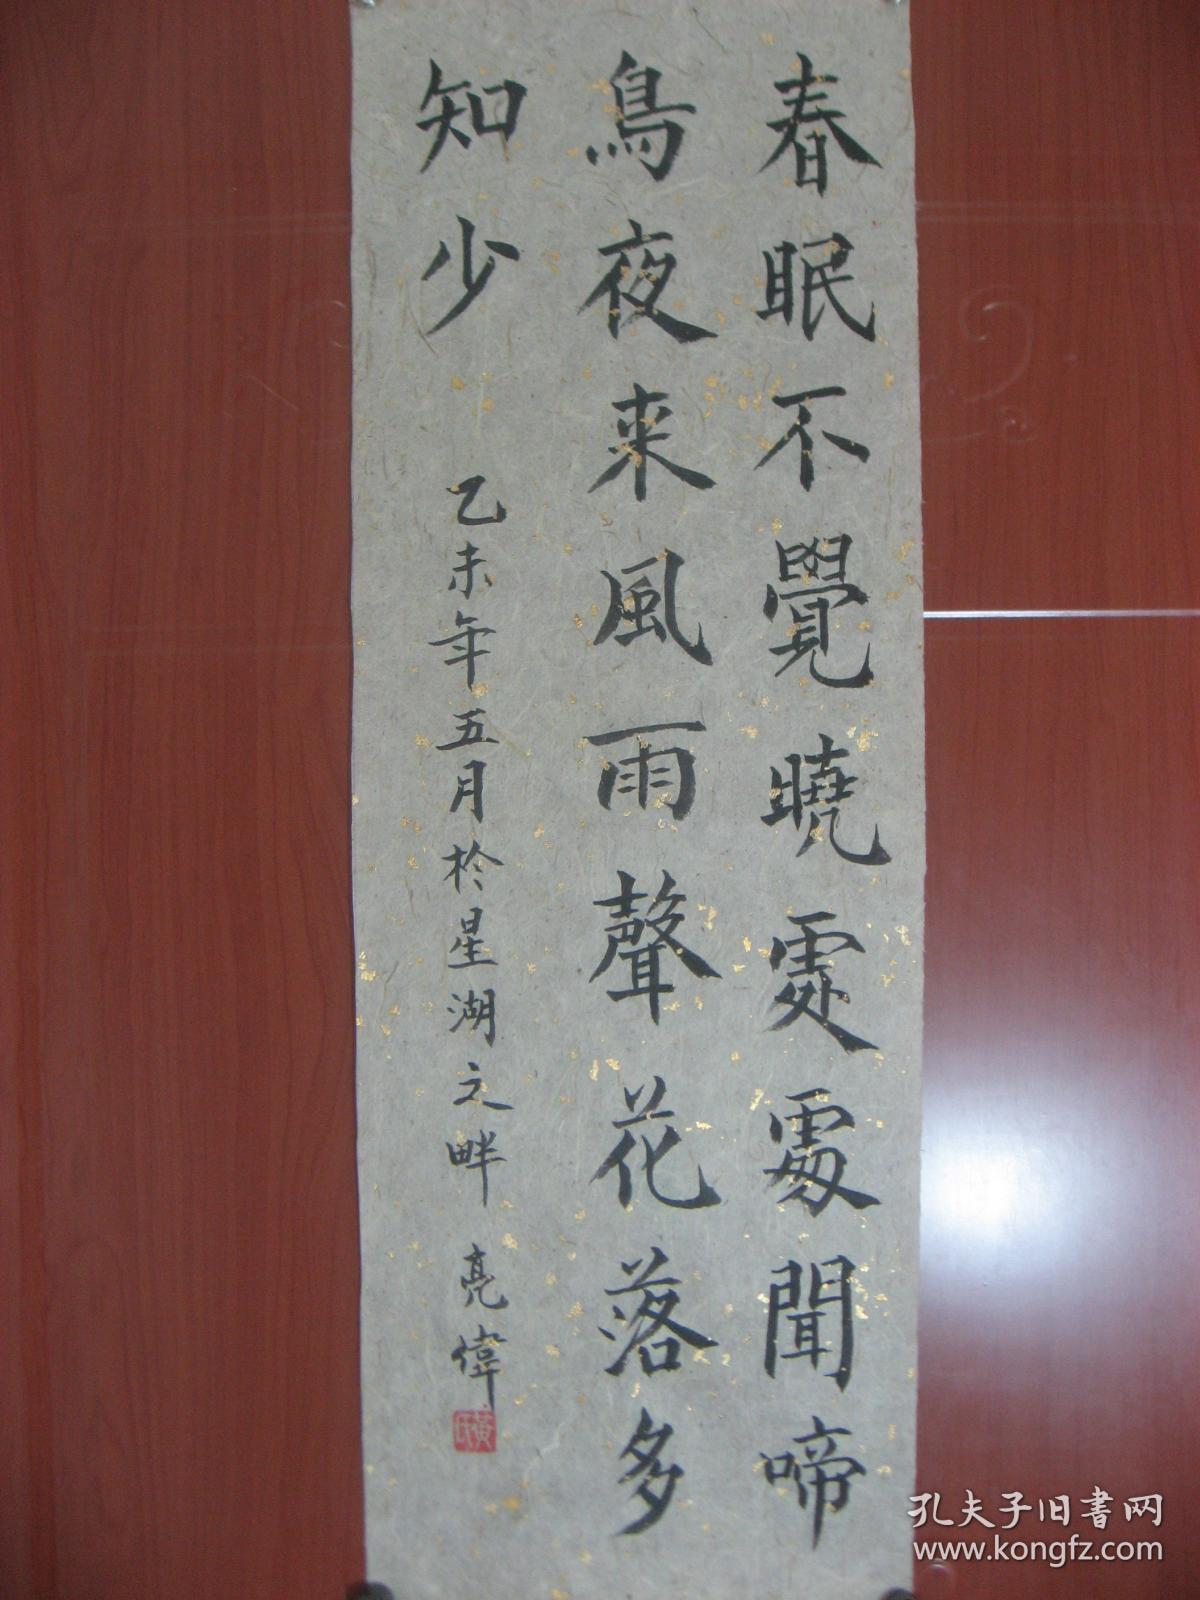 春眠不覺曉處處聞啼
鳥夜来風雨聲花落多
知少
乙未年五月於星湖之畔 亮偉
黃氏
孔夫子旧书网
www.kongfz.com